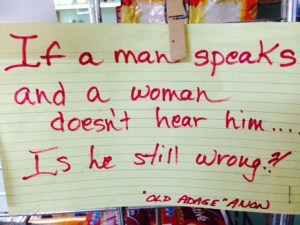 If a man speaks
and a woman
doesn't hear him....
Is he still wrong?
"OLD ADAGE" ANON